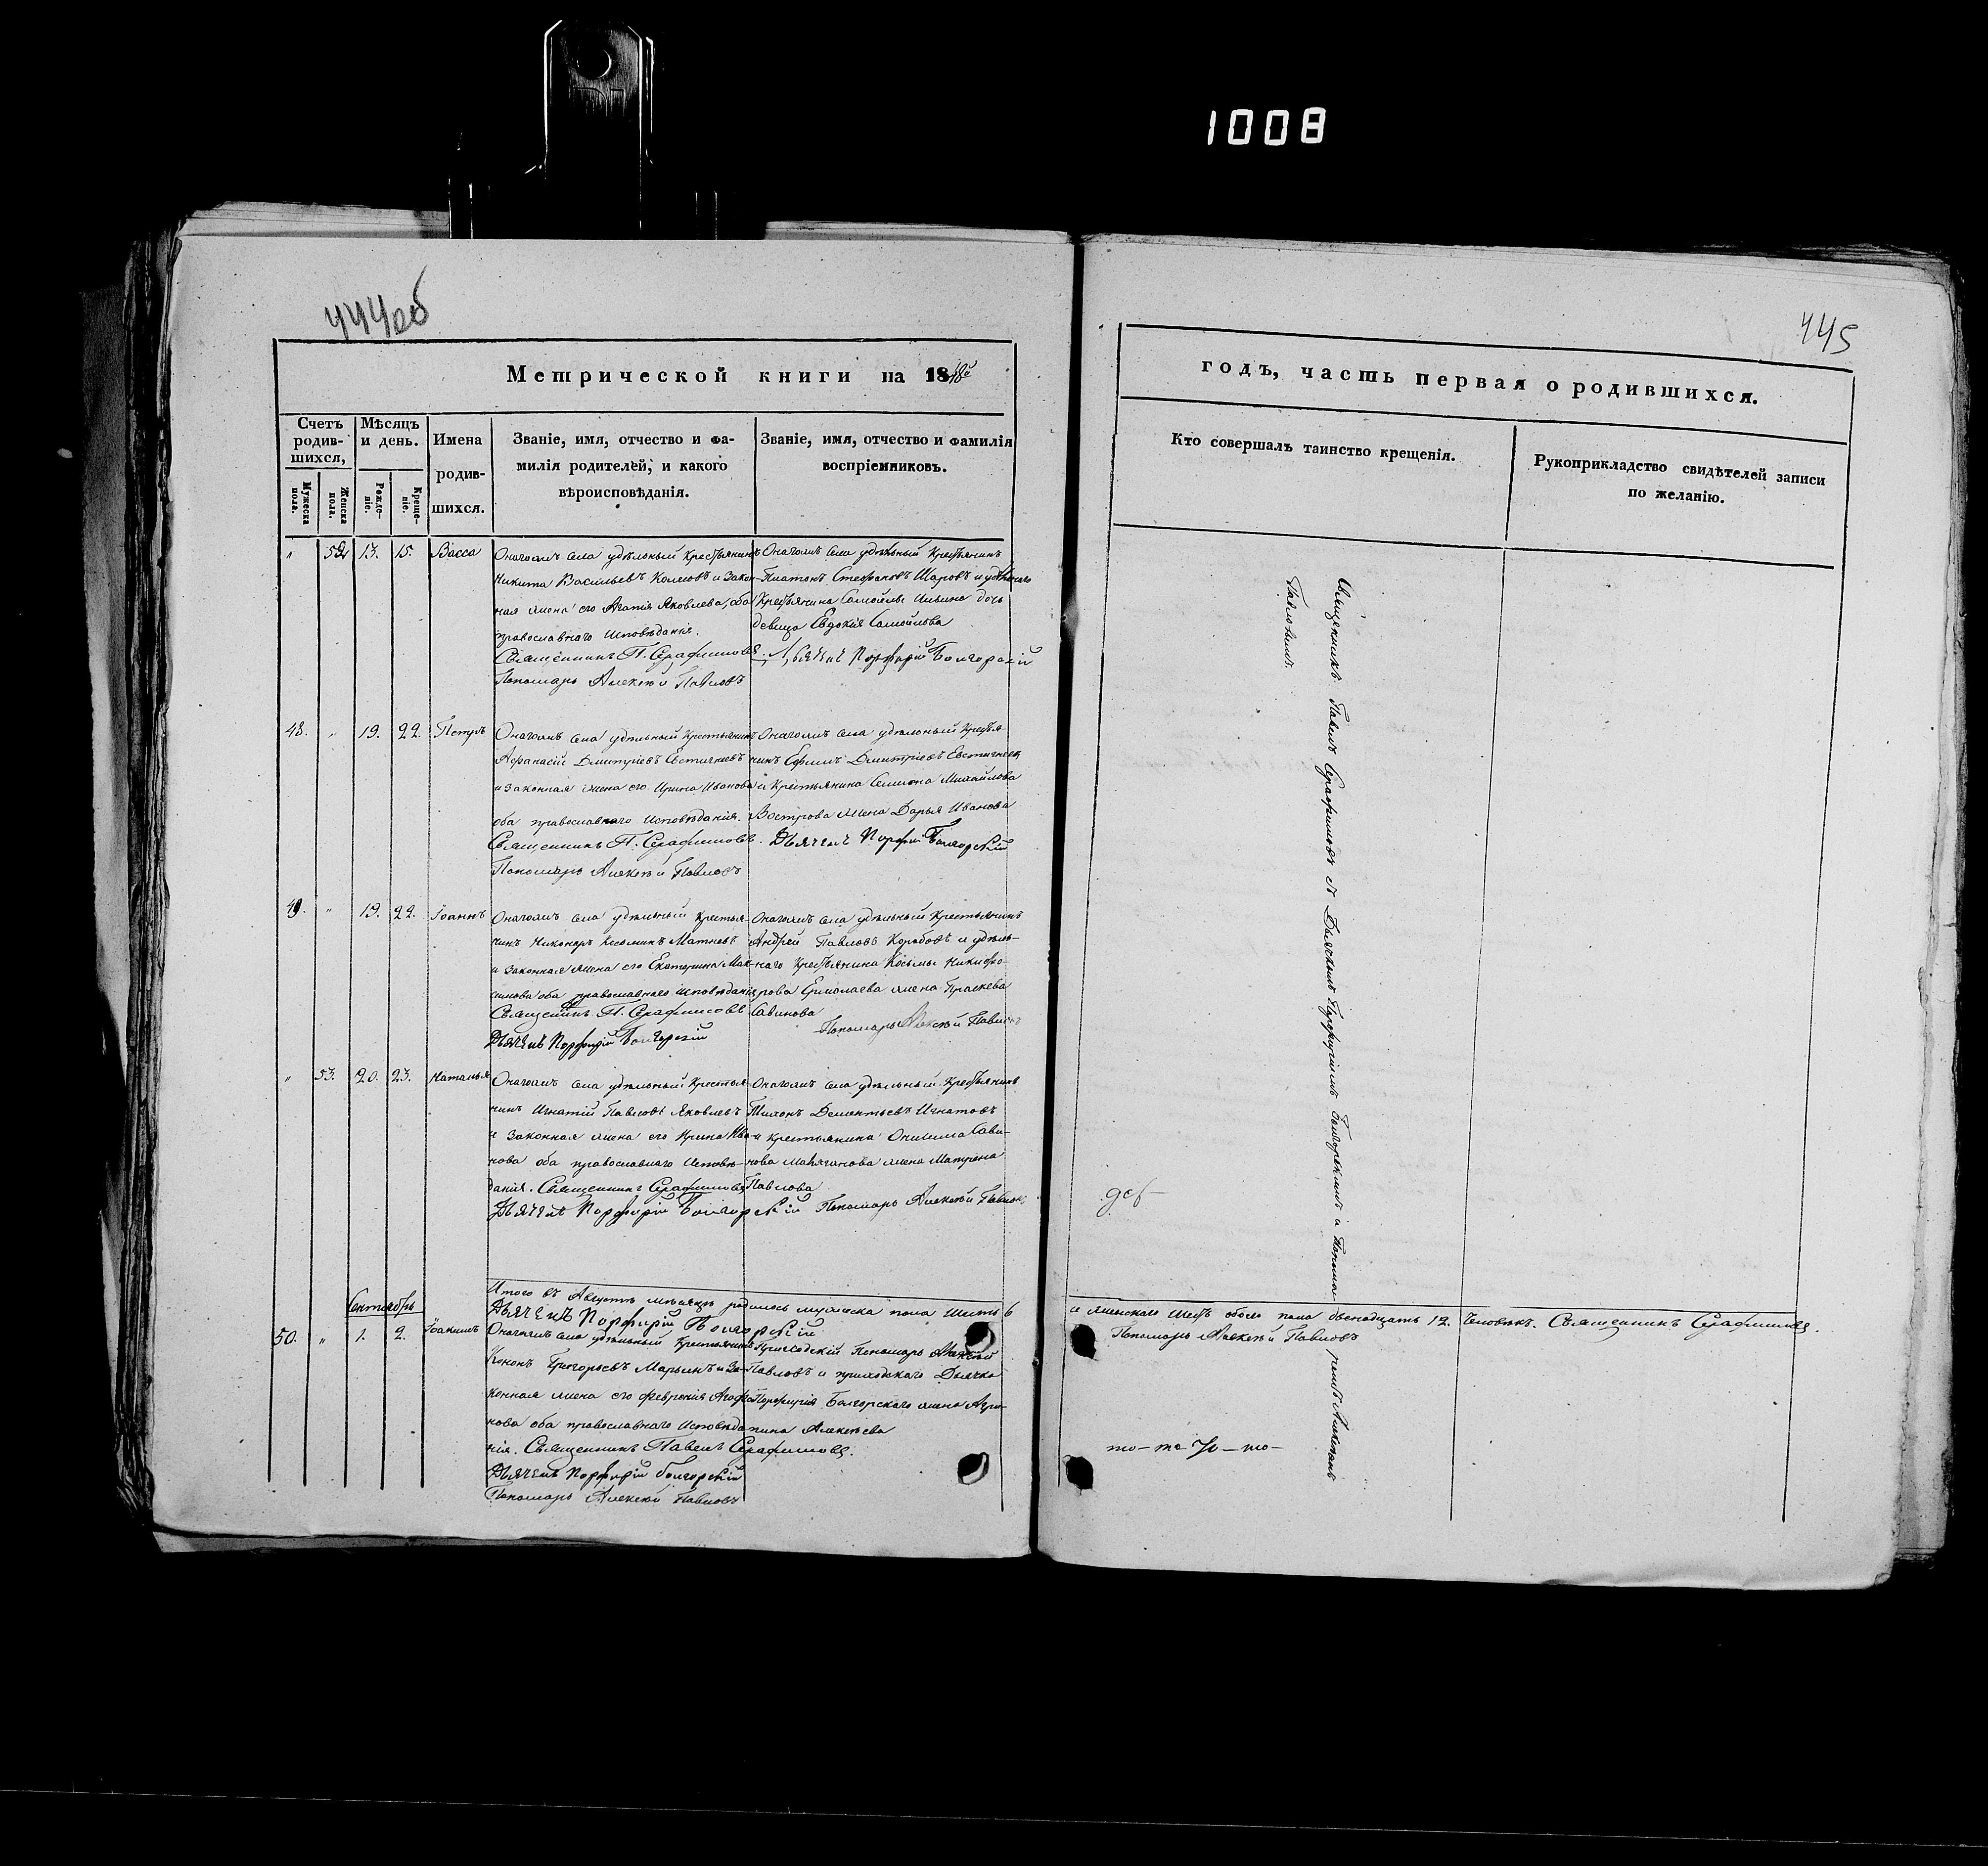 1008
444об
Метрической книги на 1848й
Счетъ родив-шихся,
Мужеска пола.
Женска пола.
Мѣсяцъ и день.
Рожде-ніе.
Креще-ніе.
Имена родив-шихся.
Званіе, имя, отчество и фа-
милія родителей, и какого
вѣроисповѣданія.
Званіе, имя, отчество и фамилія
воспріемниковъ.
" 52 13. 15. Васса
Онагожъ села удѣльный крестьянинъ
Никита Васильевъ и закон-
ная жена его Агапія Яковлева, оба
православнаго исповѣданія.
Священникъ П. Серафимовъ.
Пономарь Алексѣй Павловъ
Онагожъ села удѣльный крестьянинъ
Платонъ Стефановъ Шаровъ и удѣльнаго
крестьянина Самойлы Ильина дочь
девица Евдокія Самойлова
Дьячекъ Порфирій Болгорскій
48. " 19. 22. Петръ
Онагожъ села удѣльный крестьянинъ
Афанасій Дмитріевъ Евстигнеевъ
и законная жена его Ирина Иванова
оба православнаго исповѣданія.
Священникъ П. Серафимовъ.
Пономарь Алексѣй Павловъ
Онагожъ села удѣльный крестья
нинъ Ефимъ Дмитріевъ Евстигнеевъ
и крестьянина Семиона Михайлова
Вострова жена Дарья Иванова
Дьячекъ Порфирій Болгорскій
49. " 19. 22. Іоаннъ
Онагожъ села удѣльный крестья-
нинъ Никоноръ Козминъ Матнеевъ
и законная жена его Екатерина Мак-
симова оба православнаго исповѣданія
Священникъ П. Серафимовъ
Дьячекъ Порфирій Болгорскій
Онагожъ села удѣльный крестьянинъ
Андрей Павловъ Коробовъ и удѣль-
наго крестьянина Косьмы Никифо-
рова Ермолаева жена Праскева
Савинова
Пономарь Алексѣй Павловъ
" 53. 20. 23. Наталья
Онагожъ села удѣльный крестья-
нинъ Игнатій Павловъ Яковлевъ
и законная жена его Ирина Ива-
нова оба православнаго исповѣ-
данія. Священникъ Серафимовъ
Дьячекъ Порфирій Болгорскій
Онагожъ села удѣльный крестьянинъ
Тихонъ Дементьевъ Игнатовъ
и крестьянина Онисима Сави-
нова жена Матрена
Павлова
Пономарь Алексѣй Павловъ
Итого въ Августѣ мѣсяцѣ родилось мужеска пола шесть 6
Дьячекъ Порфирій Болгорскій
Сентябрь
50. " 1. 2. Іоакимъ
Онагожъ села удѣльный крестьянинъ
Кононъ Григорьевъ Марьинъ и за-
конная жена его Феврония Агафо-
нова оба православнаго исповѣда
нія. Священникъ Павелъ Серафимовъ.
Дьячекъ Порфирій Болгорскій
Пономарь Алексѣй Павловъ
Приходскій Пономарь Алексѣй
Павловъ и приходскаго Дьячка
Порфирія Болгорскаго жена Агри-
пина Алексѣева
445
годъ, часть первая о родившихся.
Кто совершалъ таинство крещенія.
Рукоприкладство свидѣтелей записи
по желанію.
Священникъ Павелъ Серафимовъ съ Дьячкомъ Порфиріемъ Болгорскимъ и Понома
ремъ Алексѣемъ
Павловымъ.
и женска шесть обоего пола двенадцать 12. человѣкъ. Священникъ Серафимовъ.
Пономарь Алексѣй Павловъ
то-же